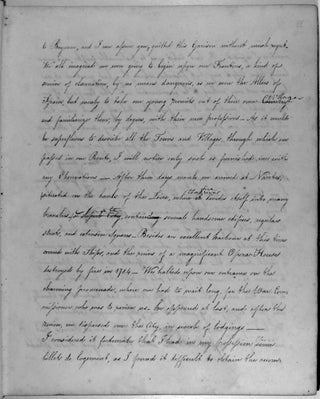 to Bayonne, and I can assure you, quitted this Garrison without much regret.
We all imagined we were going to begin upon our Frontiers, a kind of
series of by no means dangerous, as we were the Allies of
Spain, but merely to take our young recruits out of their own
and familiarize them, by degrees, with their new profession. As it would
be superfluous to describe all the Towns and Villages, through which we
passed in our Route, I will notice only such as furnished me with
any Observations — After three days march we arrived at Nantes,
situated on the banks of the Loire, which divides itself into many
branches, containing several handsome edifices, regular
streets, and extensive Squares — Besides an excellent harbour at this town
crowded with Ships, and the ruins of a magnificent Opera House
destroyed by fire in — We halted upon our entrance on the
charming promenade, where we had to wait long, for the War Com-
missioner who was to review us — he appeared at last, and after the
review, we dispersed over the City, in search of lodgings —
I considered it fortunate that I had in my possession
billets de logement, as I found it difficult to obtain the